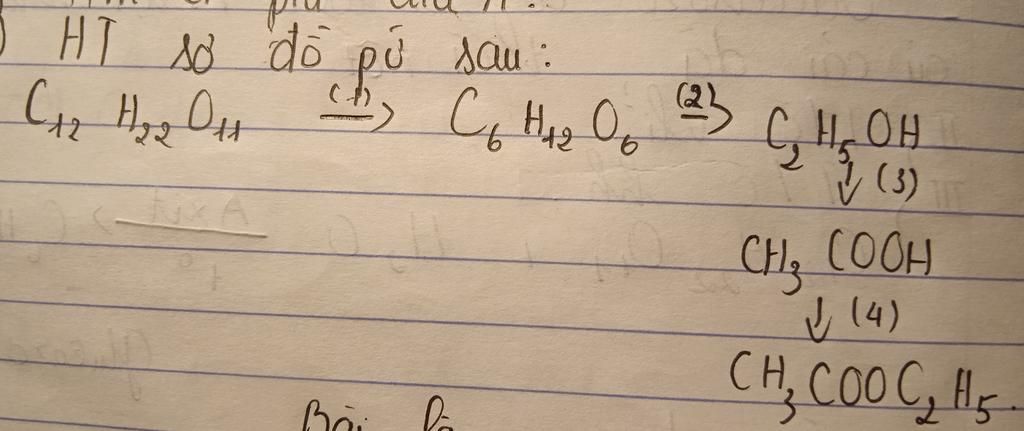 HT sơ đồ pứ sau:
C₁₂ H₂₂ O₁₁ (1)→ C₆ H₁₂ O₆ (2)→ C₂ H₅ OH
↓ (3)
CH₃ COOH
↓ (4)
CH₃COOC₂H₅.
Bài